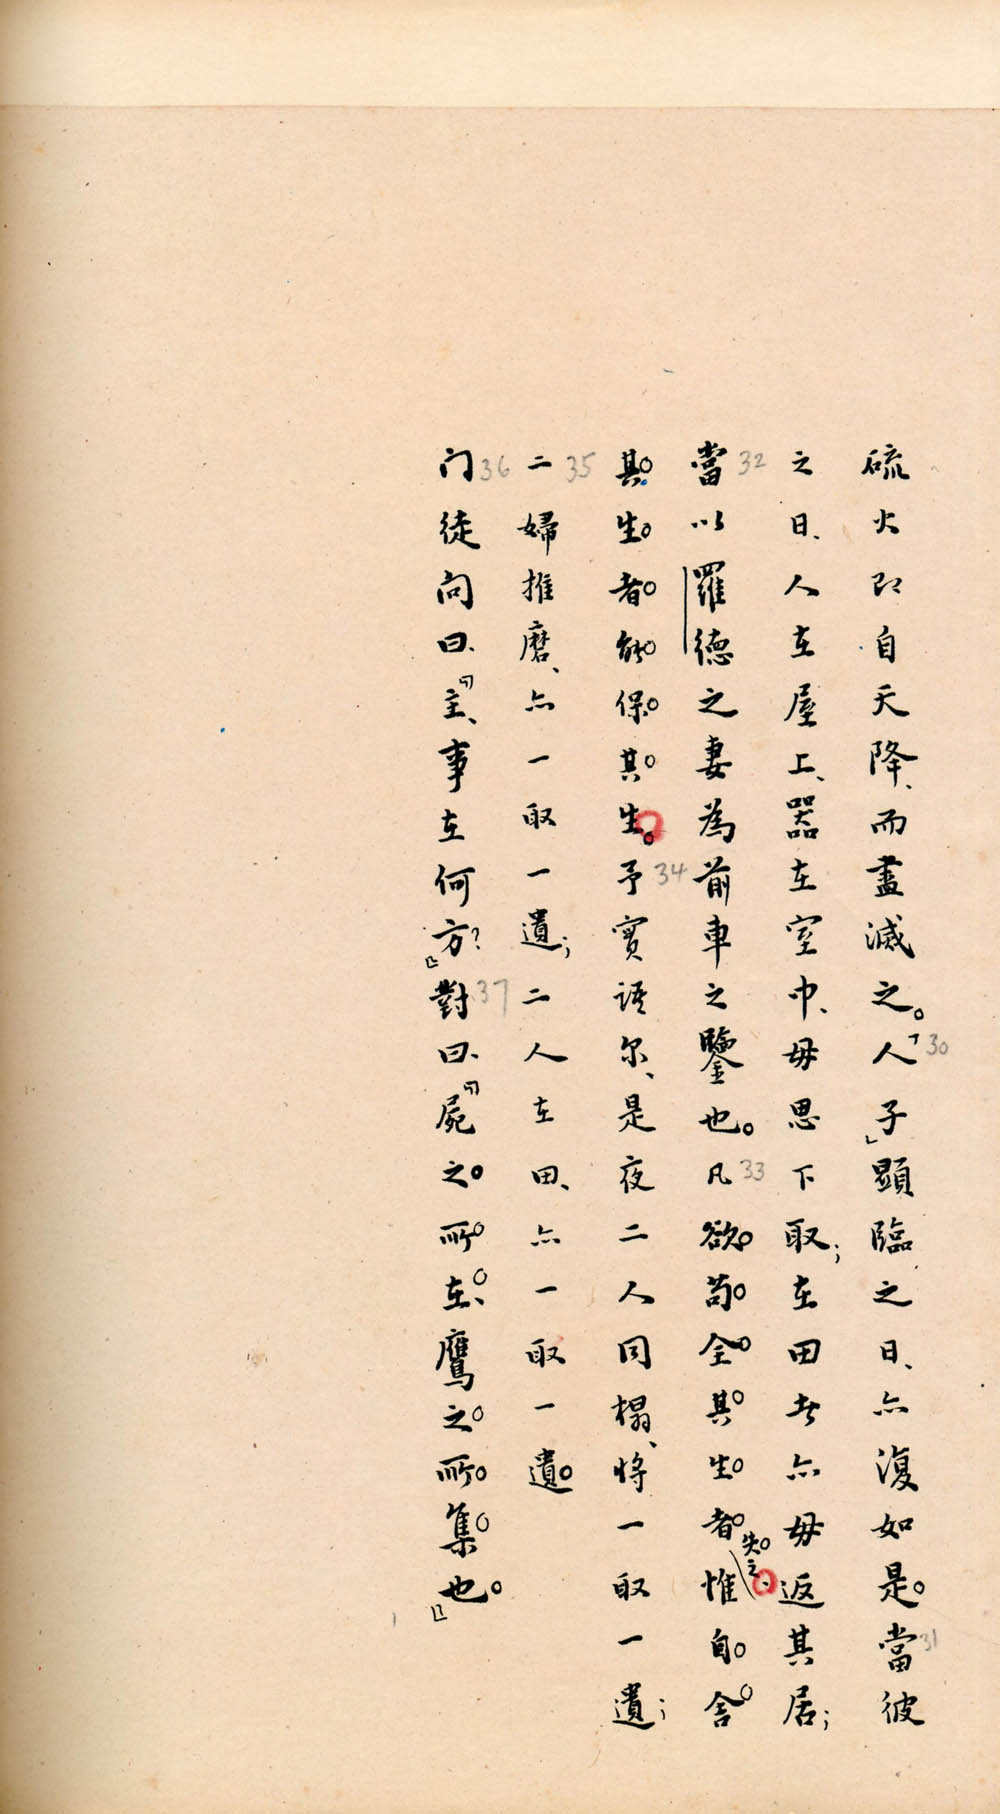 硫火即自天降、而盡滅之。30「人子」顯臨之日、亦復如是。31當彼
之日、人在屋上、器在室中、毋思下取；在田者亦毋返其居；
32當以羅德之妻為前車之鑒也。33凡欲苟全其生者失之、惟自舍
其生者能保其生。34予實語尔、是夜二人同榻、將一取一遺；
35二婦推磨、亦一取一遺；二人在田、亦一取一遺。
36门徒问曰、『主、事在何方？』37對曰、『屍之所在、鷹之所集也。』